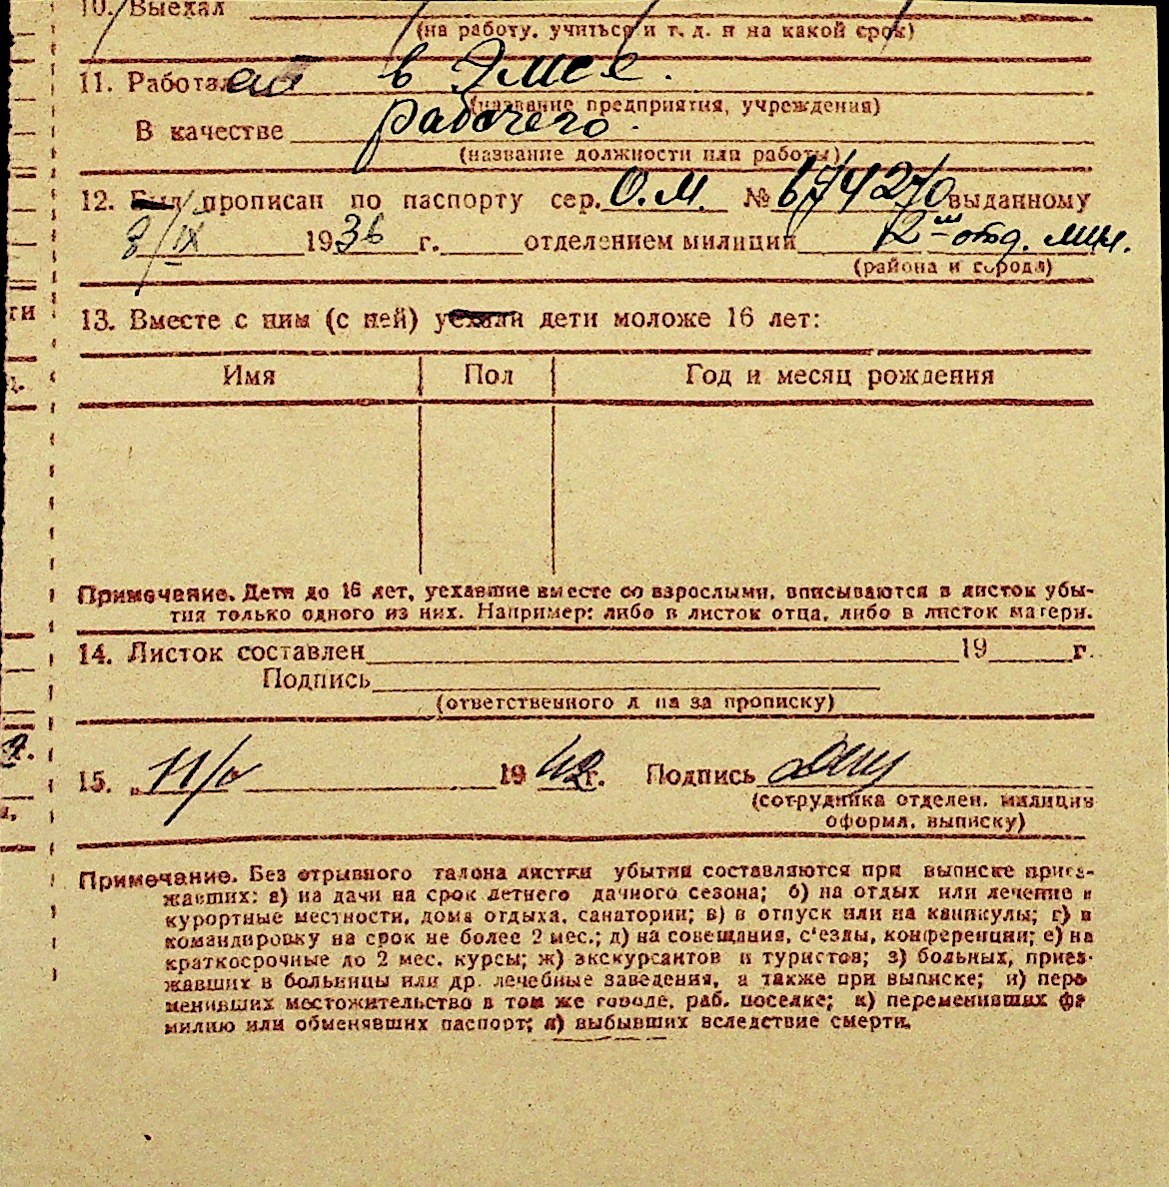 10. Выехал
(на работу, учиться и т. д. и на какой срок)
11. Работает в Эмсе.
(название предприятия, учреждения)
В качестве рабочего.
(название должности или работы)
12. Был прописан по паспорту сер. О.М. № 674270 выданному
8/IX 1936 г. отделением милиции 12 м отд. мил.
(района и города)
13. Вместе с ним (с ней) уехали дети моложе 16 лет:
Имя Пол Год и месяц рождения
Примечание. Дети до 16 лет, уехавшие вместе со взрослыми, вписываются в листок убы-
тия только одного из них. Например: либо в листок отца, либо в листок матери.
14. Листок составлен 19 г.
Подпись
(ответственного л па за прописку)
15. „ 11/ 1942 г. Подпись
(сотрудника отделен. милиции
оформл. выписку)
Примечание. Без отрывного талона листки убытия составляются при выписке приез-
жавших: а) на дачи на срок летнего дачного сезона; б) на отдых или лечение в
курортные местности, дома отдыха, санатории; в) в отпуск или на каникулы; г) в
командировку на срок не более 2 мес.; д) на совещания, с'езды, конференции; е) на
краткосрочные до 2 мес. курсы; ж) экскурсантов и туристов; з) больных, приез-
жавших в больницы или др. лечебные заведения, а также при выписке; и) пере
менивших местожительство в том же городе, раб. поселке; к) переменивших фа
милию или обменявших паспорт; л) выбывших вследствие смерти.